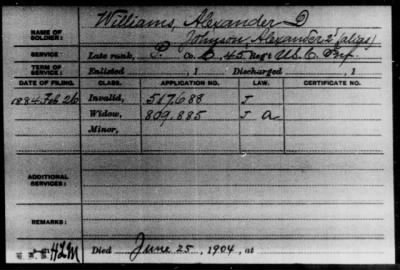 Williams, Alexander
NAME OF SOLDIER: Johnson, Alexander 2' (alias)
SERVICE: Late rank, P. Co. C, 45 Reg't U.S.C. Inf.
TERM OF SERVICE: Enlisted , 1 Discharged , 1
DATE OF FILING. CLASS. APPLICATION NO. LAW. CERTIFICATE NO.
1884 Feb 26 Invalid, 517.688 J
Widow, 809.885 J a
Minor,
ADDITIONAL SERVICES:
REMARKS:
Died June 25, 1904, at